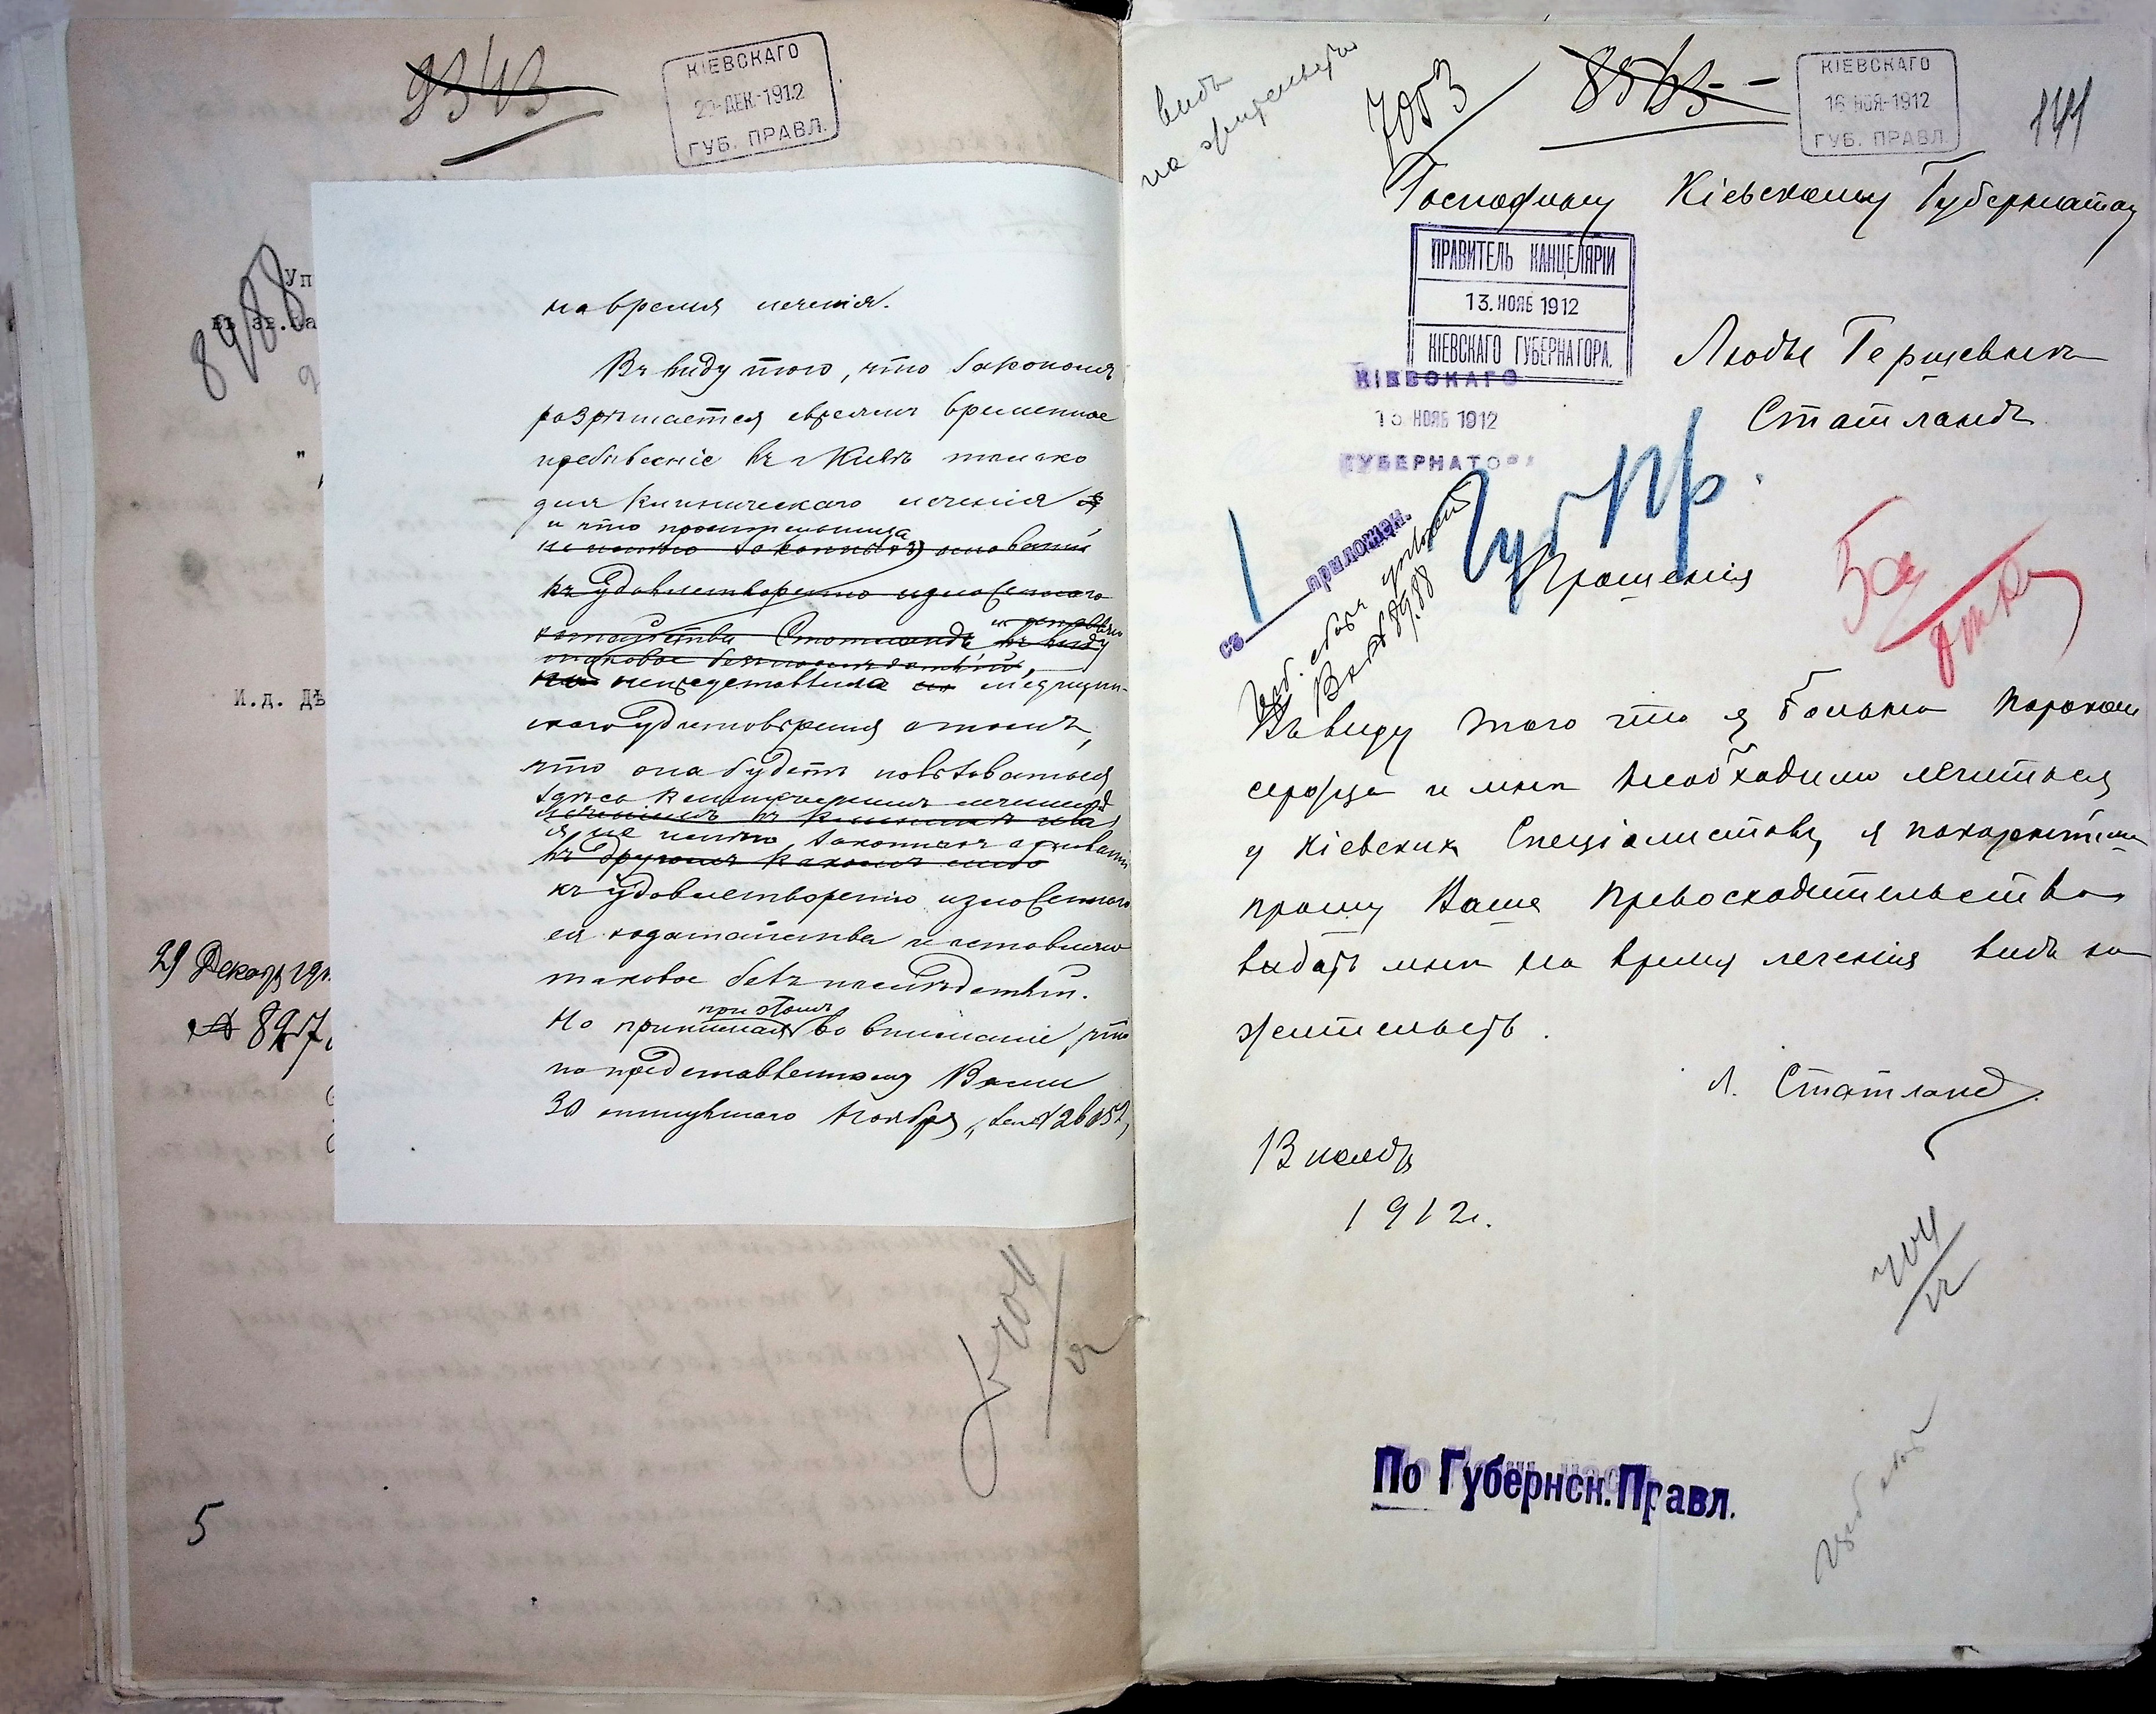 9343
КІЕВСКАГО
20 ДЕК 1912
ГУБ. ПРАВЛ.
8988
Уп
И.д. Дѣ
29 Декабр 191
5
на время леченія.
Въ виду того, что закономъ
разрѣшается евреямъ временное
пребываніе въ г. Кіевѣ только
для клиническаго леченія
и что просительница
не имѣю законныхъ основаній
къ удовлетворенію изложеннаго
ходатайства Стотландъ въ виду
таковое безъ послѣдствій,
не представила медицин-
скаго удостовѣренія о томъ,
что она будетъ пользоваться
здѣсь клиническимъ леченіемъ
я не имѣю законныхъ основаній
въ другомъ какомъ либо
къ удовлетворенію изложеннаго
ея ходатайства и оставляю
таковое безъ послѣдствій.
при этомъ
Но принимая во вниманіе, что
по представленному Вами
30 минувшаго Ноября,
704
видъ
на жительство
7053
8543
КІЕВСКАГО
16 НОЯ 1912
ГУБ. ПРАВЛ.
141
Господину Кіевскому Губернатору
ПРАВИТЕЛЬ КАНЦЕЛЯРІИ
13. НОЯБ 1912
КІЕВСКАГО ГУБЕРНАТОРА.
КІЕВСКАГО
13 НОЯБ 1912
ГУБЕРНАТОРА
Любы Гершевны
Статландъ
Губ Пр.
съ 1 приложен.
8988
Прошенія
Въ виду того что я больна порокомъ
сердца и мнѣ необходимо лечиться
у Кіевскихъ Спеціалистовъ, я покорнѣйше
прошу Ваше Превосходительство
выдать мнѣ на время леченія видъ на
жительство.
Л. Статландъ.
13 нояб
1912г.
704
По Губернск. Правл.